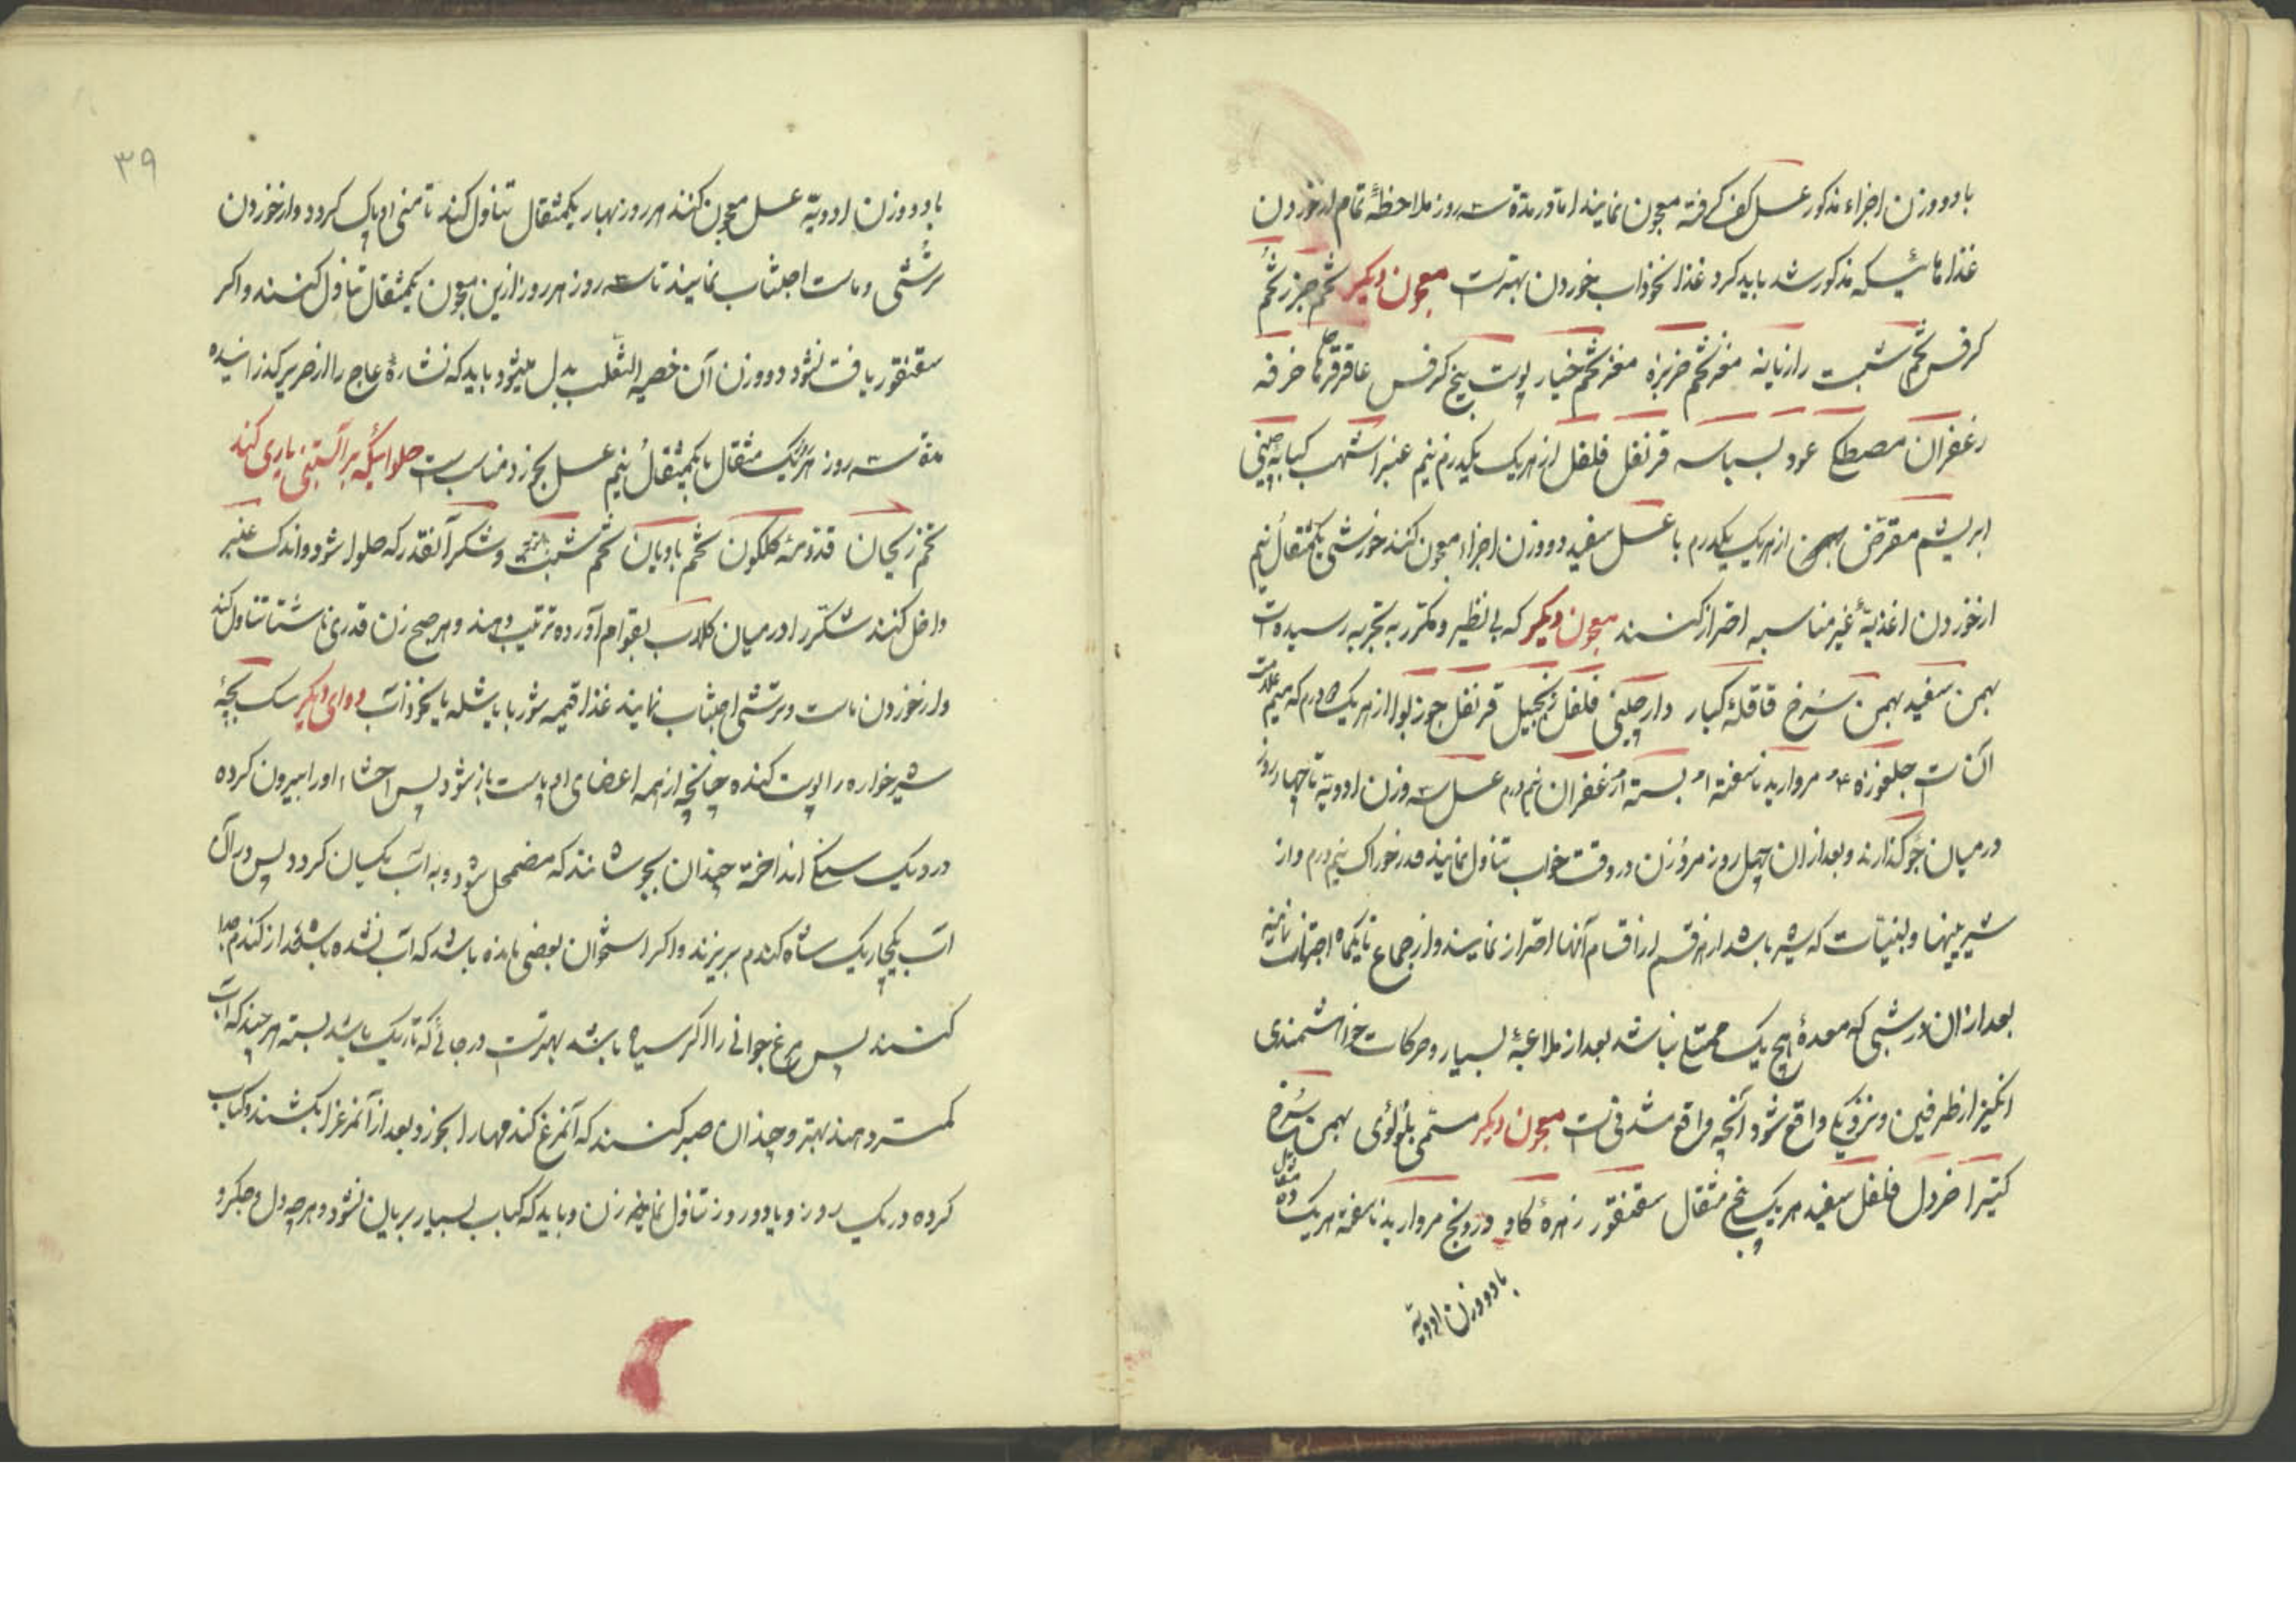 با دو وزن اجزاء مذکور عسل کف گرفته معجون نمایند اما در مدة سه روز ملاحظهٔ تمام از خوردن
غذاهائیکه مذکور شد باید کرد غذا نخوداب خوردن بهترست معجون دیکر تخم جزر تخم
کرفس تخم شبت رازیانه مغز تخم خربزه مغز تخم خیار پوست بیخ کرفس عاقرقرحا خرفه
زعفران مصطکی عود بسباسه قرنفل فلفل از هریک یکدرم نیم عنبر اشهب کبابه چینی
ابریشم مقرض بهمن از هریک یکدرم با عسل سفید دو وزن اجزاء معجون کنند خورشی یکمثقال نیم
از خوردن اغذیهٔ غیر مناسبه احتراز کنند معجون دیکر که بی نظیر و مکرر به تجربه رسیده است
بهمن سفید بهمن سرخ قاقلهٔ کبار دارچینی فلفل زنجبیل قرنفل جوز بوا از هریک ۵ درم که میم علامت
آن است جلغوزه مروارید ناسفته بسته زعفران نیم درم عسل سه وزن ادویه تا چهار روز
در میان جو گذارند و بعد از ان چهل روز مرد و زن در وقت خواب تناول نمایند قدر خوراک نیم درم و از
شیرینیها و لبنیات که شیر باشد از هر قسم از اقسام آنها احتراز نمایند و از جماع تا یکماه اجتناب نمایند
بعد از ان در شبی که معدهٔ هیچ یک ممتلی نباشد بعد از ملاعبهٔ بسیار و حرکات خواهشمندی
انکیز از طرفین و نزدیکی واقع شود آنچه واقع شدنی است معجون دیکر مسمی بلؤلؤی بهمن سرخ
کتیرا خردل فلفل سفید هریک پنج مثقال سقنقور زهرهٔ کاو درونج مروارید ناسفته هریک ده مثقال
با دو وزن ادویه
۳۹
با دو وزن ادویه عسل معجون کنند هر روز نهار یکمثقال تناول کنند تا منی او پاک کردد و از خوردن
ترشی و ماست اجتناب نمایند تا سه روز هر روز ازین معجون یکمثقال تناول کنند و اکر
سقنقور یافت نشود دو وزن آن خصیه الثعلب بدل میشود باید که نشارهٔ عاج را از حریر کذرانیده
مدة سه روز هر یک مثقال با یکمثقال نیم عسل بخورد مناسب است حلوائیکه بر آبستنی یاری کند
تخم ریحان قدومهٔ کلکون تخم بادیان تخم شبت و شکر آنقدر که حلوا شود و اندک عنبر
داخل کنند شکر را در میان کلاب بقوام آورده ترتیب دهند و هر صبح زن قدری ناشتا تناول کند
و از خوردن ماست و ترشی اجتناب نمایند غذا قیمه شوربا یا شله یا نخوداب دوای دیکر سک بچهٔ
شیر خواره را پوست کنده چنانچه از همه اعضای او پوست باز شود پس احشاء او را بیرون کرده
در دیک سنکی انداخته چندان بجوشانند که مضمحل شود و به آب یکسان کردد پس در آن
آب یکچاریک شاه کندم بریزند و اکر استخوان بعضی مانده باشد که آب نشده باشد از کندم جدا
کنند پس مرغ جوانی را اکر سیاه باشد بهترست در جائی که تاریک باشد بسته هر چند که آب
کمتر دهند بهتر و چندان صبر کنند که آنمرغ کندمها را بخورد و بعد از آنمرغ را بکشند و کباب
کرده در یک روز و یا دو روز تناول نمایند زن و باید که کباب بسیار بریان نشود و هر چه دل و جکر و